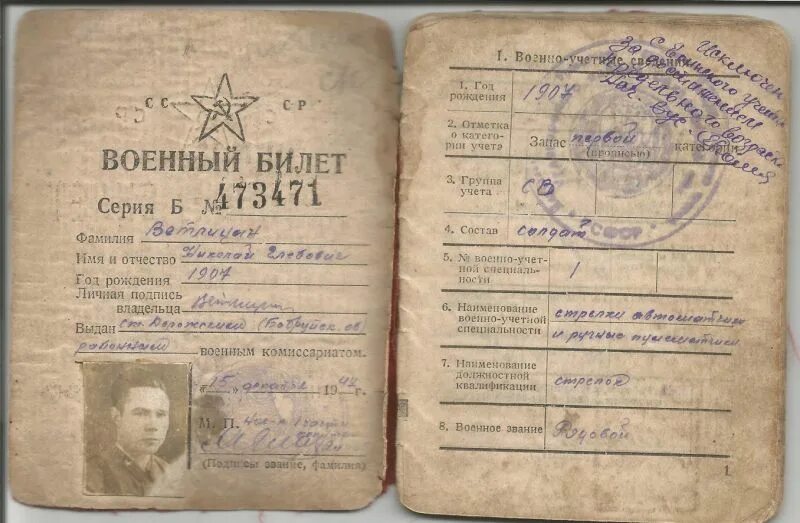 СС СР
ВОЕННЫЙ БИЛЕТ
Серия Б № 473471
Фамилия Ветлицын
Имя и отчество Николай Глебович
Год рождения 1907
Личная подпись
владельца
Выдан ст. Дорожским (Бобруйск. об
районным военным комиссариатом.
„15" декабря 1944 г.
М. П. Нач-к 1 части
(Подпись, звание, фамилия)
Исключен
с воинского учета
За достижением
предельного возраста
Нач.
I. Военно-учетные сведения
1. Год
рождения 1907
2. Отметка
о катего-
рии учета Запас первой категории
(прописью)
3. Группа
учета СВ
4. Состав солдат
5. № военно-учет-
ной специаль-
ности 1
6. Наименование
военно-учетной
специальности стрелки автоматчики
и ручные пулеметчики
7. Наименование
должностной
квалификации стрелок
8. Военное звание Рядовой
СССР
1